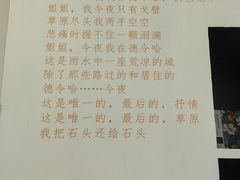 姐姐，我今夜只有戈壁
草原尽头我两手空空
悲痛时握不住一颗泪滴
姐姐，今夜我在德令哈
这是雨水中一座荒凉的城
除了那些路过的和居住的
德令哈……今夜
这是唯一的，最后的，抒情
这是唯一的，最后的，草原
我把石头还给石头